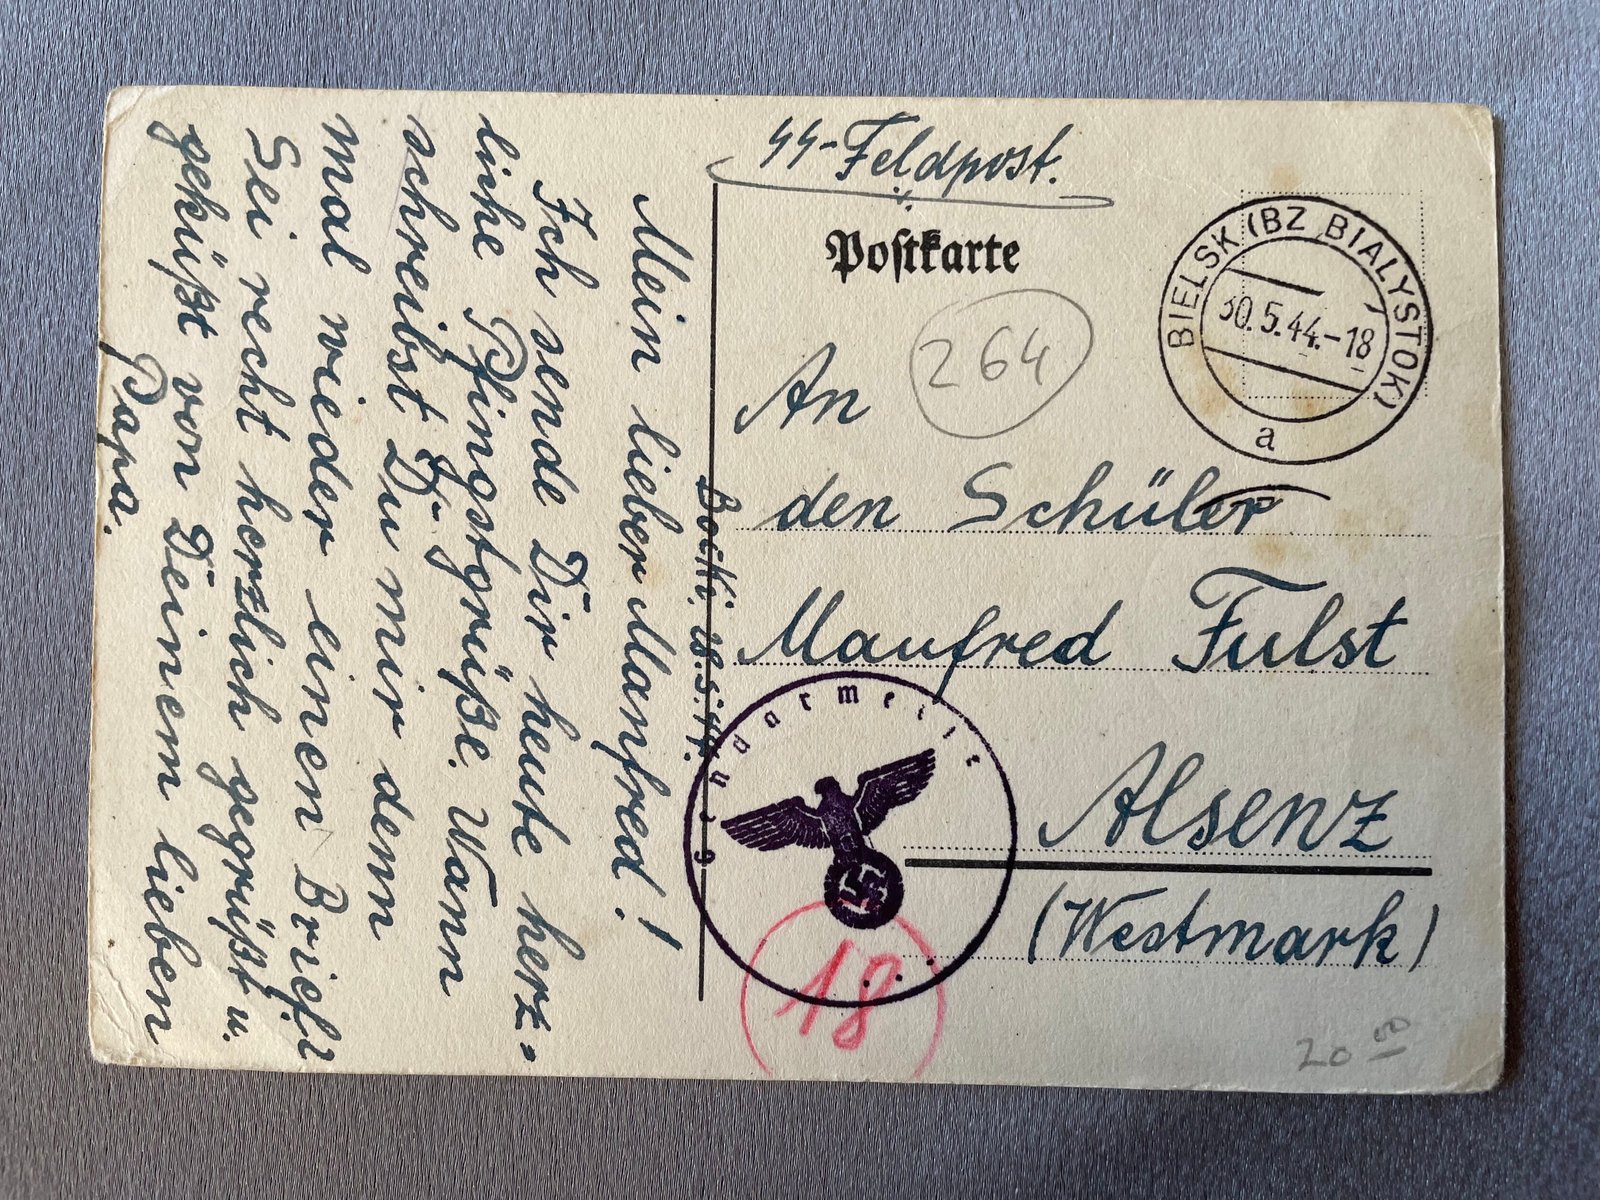 SS-Feldpost.
Postkarte
264
BIELSK (BZ BIALYSTOK)
30.5.44.-18
a
An
den Schüler
Manfred Fulst
Alsenz
(Westmark)
Gendarmerie
18
20
Bocki, 28.5.44.
Mein lieber Manfred!
Ich sende Dir heute herz-
liche Pfingstgrüße. Wann
schreibst Du mir denn
mal wieder einen Brief?
Sei recht herzlich gegrüßt u.
geküßt von Deinem lieben
Papa.